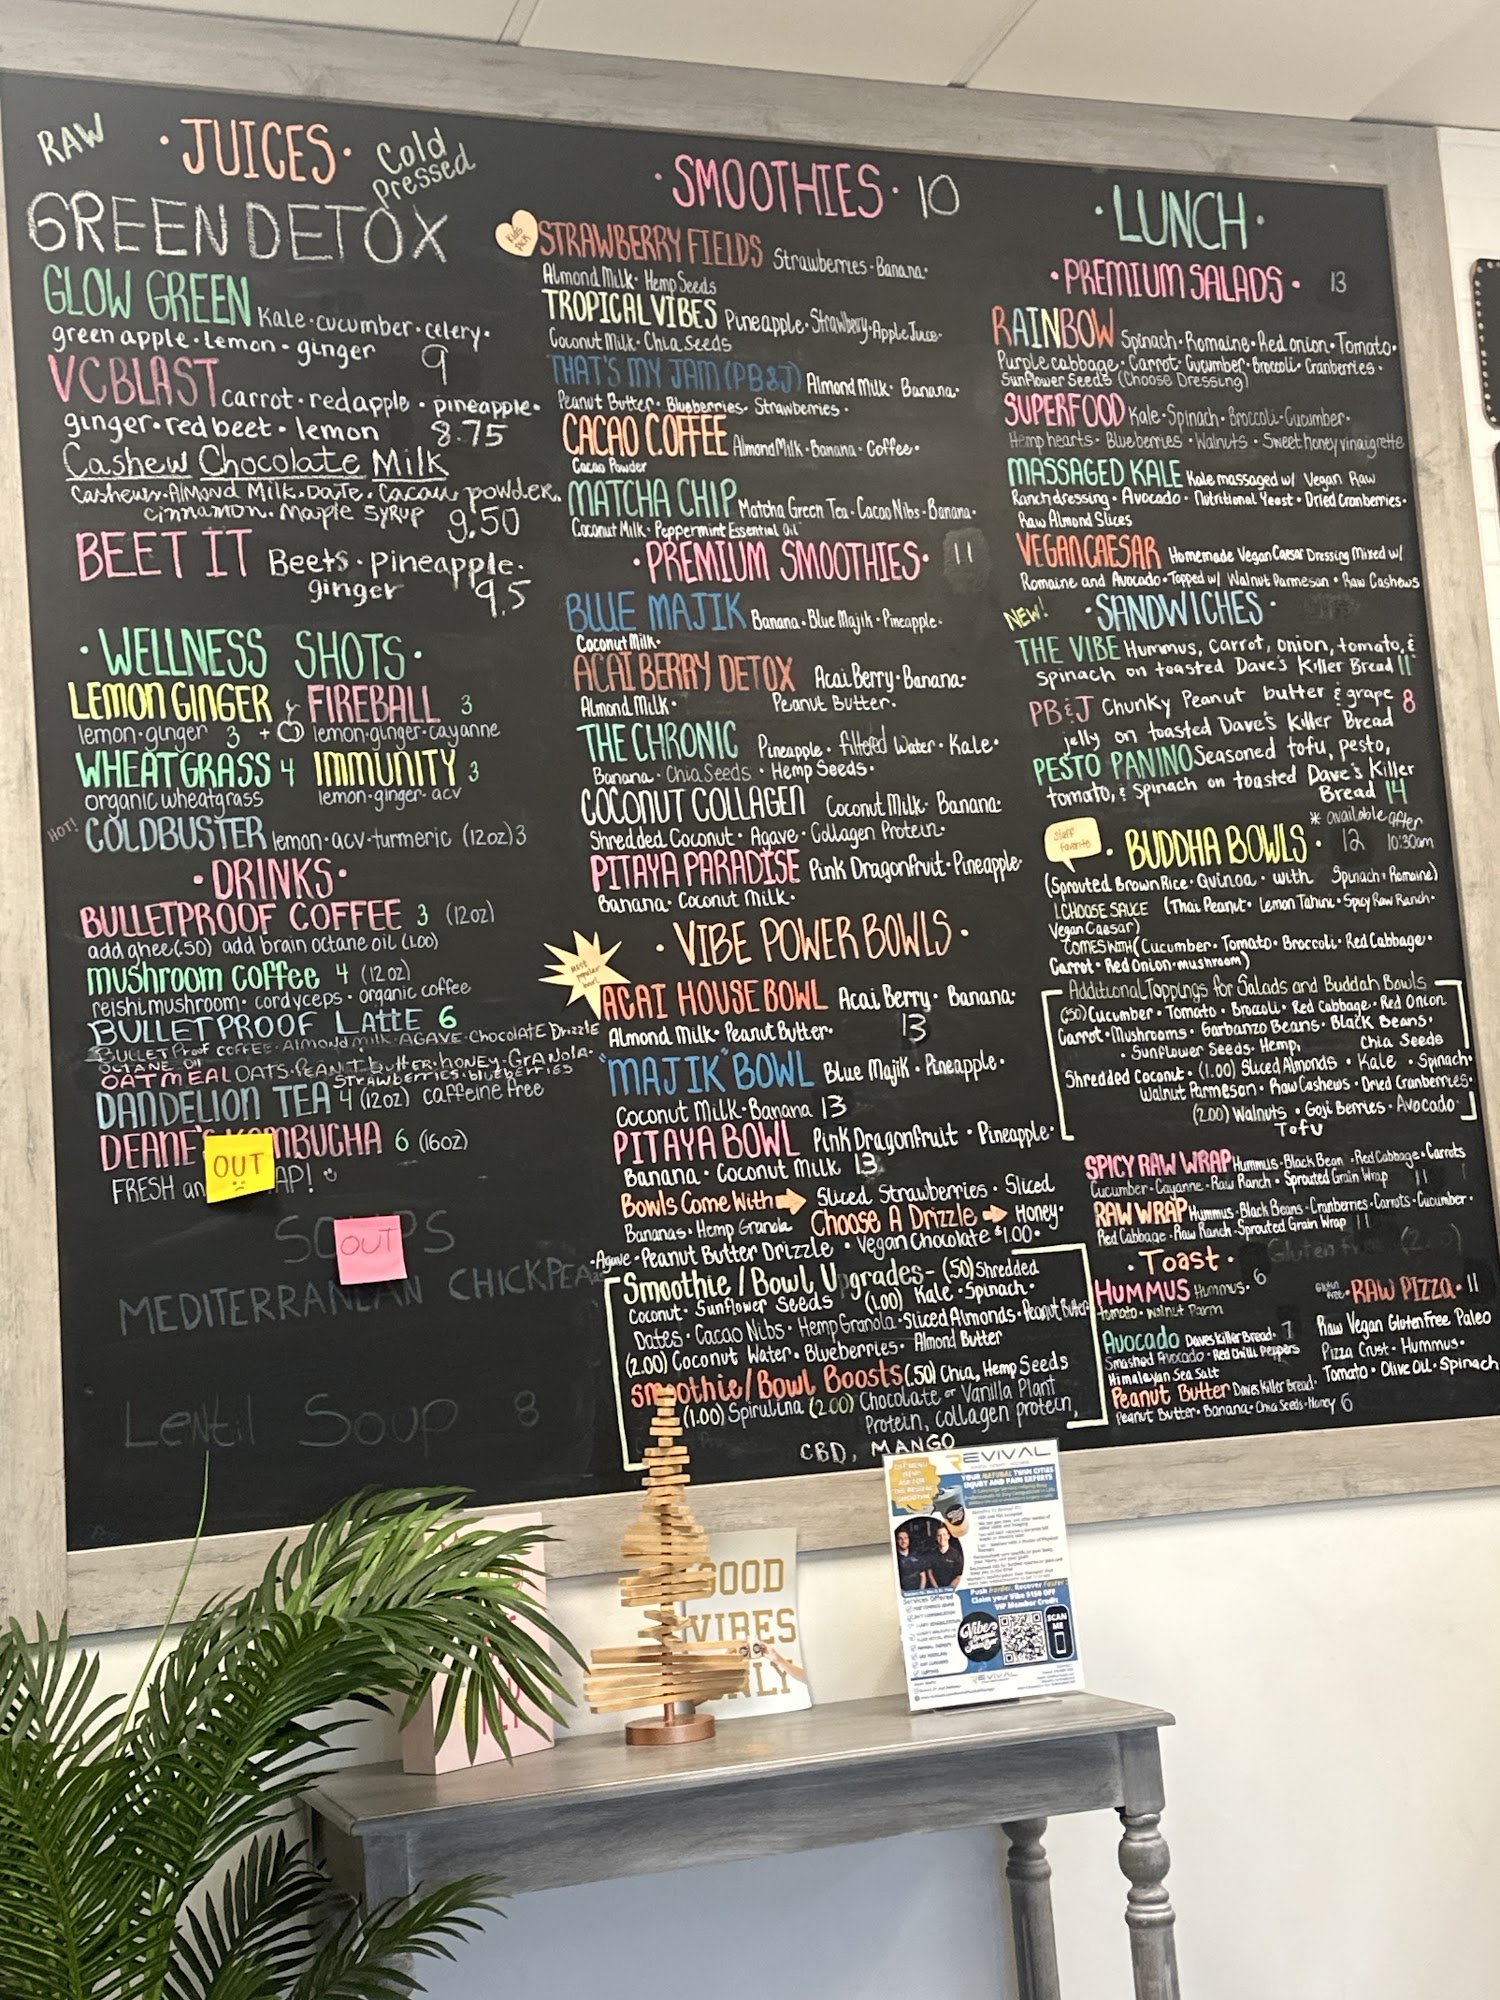 RAW
·JUICES·
Cold Pressed
GREEN DETOX
GLOW GREEN Kale·cucumber·celery·
green apple·lemon·ginger 9
VC BLAST carrot·red apple·pineapple·
ginger·red beet·lemon 8.75
Cashew Chocolate Milk
Cashews·Almond Milk·Date·Cacau powder
cinnamon·Maple syrup 9.50
BEET IT Beets·Pineapple·
ginger 9.5
·WELLNESS SHOTS·
LEMON GINGER FIREBALL 3
lemon·ginger 3 + lemon·ginger·cayanne
WHEATGRASS 4 IMMUNITY 3
organic wheatgrass lemon·ginger·acv
HOT! COLDBUSTER lemon·acv·turmeric (12oz) 3
·DRINKS·
BULLETPROOF COFFEE 3 (12oz)
add ghee (.50) add brain octane oil (1.00)
mushroom coffee 4 (12oz)
reishi mushroom·cordyceps·organic coffee
BULLETPROOF LATTE 6
BULLETProof COFFEE·Almond milk·AGAVE·ChocolatE Drizzle
OCTANE OIl
OATMEAL OATS·PEANUT butter·honey·GRANOLA·
STRAWBERRIES·bluEbERRIES
DANDELION TEA 4 (12oz) caffeine free
DEANE'S KOMBUCHA 6 (16oz)
OUT
FRESH on TAP!
SOUPS
OUT
MEDITERRANEAN CHICKPEA
Lentil Soup 8
·SMOOTHIES· 10
Kids Pick
STRAWBERRY FIELDS Strawberries·Banana·
Almond Milk·Hemp Seeds
TROPICAL VIBES Pineapple·Strawbery·Apple Juice·
Coconut Milk·Chia Seeds
THAT'S MY JAM (PB&J) Almond Milk·Banana·
Peanut Butter·Blueberries·Strawberries·
CACAO COFFEE Almond Milk·Banana·Coffee·
Cacao Powder
MATCHA CHIP Matcha Green Tea·Cacao Nibs·Banana·
Coconut Milk·Peppermint Essential Oil
·PREMIUM SMOOTHIES· 11
BLUE MAJIK Banana·Blue Majik·Pineapple·
Coconut Milk·
ACAI BERRY DETOX Acai Berry·Banana·
Almond Milk· Peanut Butter·
THE CHRONIC Pineapple·filtered Water·Kale·
Banana·Chia Seeds·Hemp Seeds·
COCONUT COLLAGEN Coconut Milk·Banana·
Shredded Coconut·Agave·Collagen Protein·
PITAYA PARADISE Pink Dragonfruit·Pineapple·
Banana·Coconut Milk·
·VIBE POWER BOWLS·
Most popular
ACAI HOUSE BOWL Acai Berry·Banana·
Almond Milk·Peanut Butter· 13
"MAJIK" BOWL Blue Majik·Pineapple·
Coconut Milk·Banana 13
PITAYA BOWL Pink Dragonfruit·Pineapple·
Banana·Coconut Milk 13
Bowls Come With Sliced Strawberries·Sliced
Bananas·Hemp Granola Choose A Drizzle Honey·
·Agave·Peanut Butter Drizzle·Vegan Chocolate $1.00·
Smoothie/Bowl Upgrades- (.50) Shredded
Coconut·Sunflower Seeds (1.00) Kale·Spinach·
Dates·Cacao Nibs·Hemp Granola·Sliced Almonds·Peanut Butter
(2.00) Coconut Water·Blueberries·Almond Butter
Smoothie/Bowl Boosts (.50) Chia, Hemp Seeds
(1.00) Spirulina (2.00) Chocolate or Vanilla Plant
Protein, collagen protein,
CBD, MANGO
·LUNCH·
·PREMIUM SALADS· 13
RAINBOW Spinach·Romaine·Red onion·Tomato·
Purple cabbage·Carrot·Cucumber·Broccoli·Cranberries·
Sunflower Seeds (Choose Dressing)
SUPERFOOD Kale·Spinach·Broccoli·Cucumber·
Hemp hearts·Blueberries·Walnuts·Sweet honey vinaigrette
MASSAGED KALE Kale massaged w/ Vegan Raw
Ranch dressing·Avocado·Nutritional Yeast·Dried Cranberries·
Raw Almond Slices
VEGAN CAESAR Homemade Vegan Caesar Dressing Mixed w/
Romaine and Avocado·Topped w/ Walnut Parmesan·Raw Cashews
NEW! ·SANDWICHES·
THE VIBE Hummus, carrot, onion, tomato, &
spinach on toasted Dave's Killer Bread 11
PB&J Chunky Peanut butter & grape 8
jelly on toasted Dave's Killer Bread
PESTO PANINO Seasoned tofu, pesto,
tomato, & spinach on toasted Dave's Killer
Bread 14
* available after
10:30am
Staff favorite
·BUDDHA BOWLS· 12
(Sprouted Brown Rice·Quinoa·with Spinach+Romaine)
1. CHOOSE SAUCE (Thai Peanut·Lemon Tahini·Spicy Raw Ranch·
Vegan Caesar)
COMES WITH (Cucumber·Tomato·Broccoli·Red Cabbage·
Carrot·Red Onion·mushroom)
Additional Toppings for Salads and Buddah Bowls
(.50) Cucumber·Tomato·Broccoli·Red Cabbage·Red Onion
Carrot·Mushrooms·Garbanzo Beans·Black Beans·
·Sunflower Seeds·Hemp· Chia Seeds
Shredded Coconut·(1.00) Sliced Almonds·Kale·Spinach·
Walnut Parmesan·Raw Cashews·Dried Cranberries·
(2.00) Walnuts·Goji Berries·Avocado·
Tofu
SPICY RAW WRAP Hummus·Black Bean·Red Cabbage·Carrots
Cucumber·Cayanne·Raw Ranch·Sprouted Grain Wrap 11
RAW WRAP Hummus·Black Beans·Cranberries·Carrots·Cucumber·
Red Cabbage·Raw Ranch·Sprouted Grain Wrap 11
·Toast· Gluten free (2.00)
HUMMUS Hummus· 6
tomato·Walnut Parm
Avocado Daves Killer Bread· 7
Smashed Avocado·Red Chili Peppers
Himalayan Sea Salt
Peanut Butter Daves Killer Bread·
Peanut Butter·Banana·Chia Seeds·Honey 6
Gluten free ·RAW PIZZA· 11
Raw Vegan Gluten Free Paleo
Pizza Crust·Hummus·
Tomato·Olive Oil·Spinach
REVIVAL
YOUR NATURAL TWIN CITIES
INJURY AND PAIN EXPERTS
Push Harder, Recover Faster!
Claim your Vibe $150 OFF
VIP Member Credit
Services Offered
Vibe
SCAN ME
REVIVAL
GOOD
VIBES
ONLY